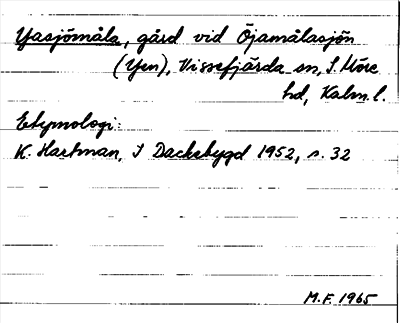 Yasjömåla, gård vid Öjamålasjön
(Yen), Vissefjärda sn, S. Möre
hd, Kalm. l.
Etymologi:
K. Hartman, I Dackebygd 1952, s. 32
M.F. 1965